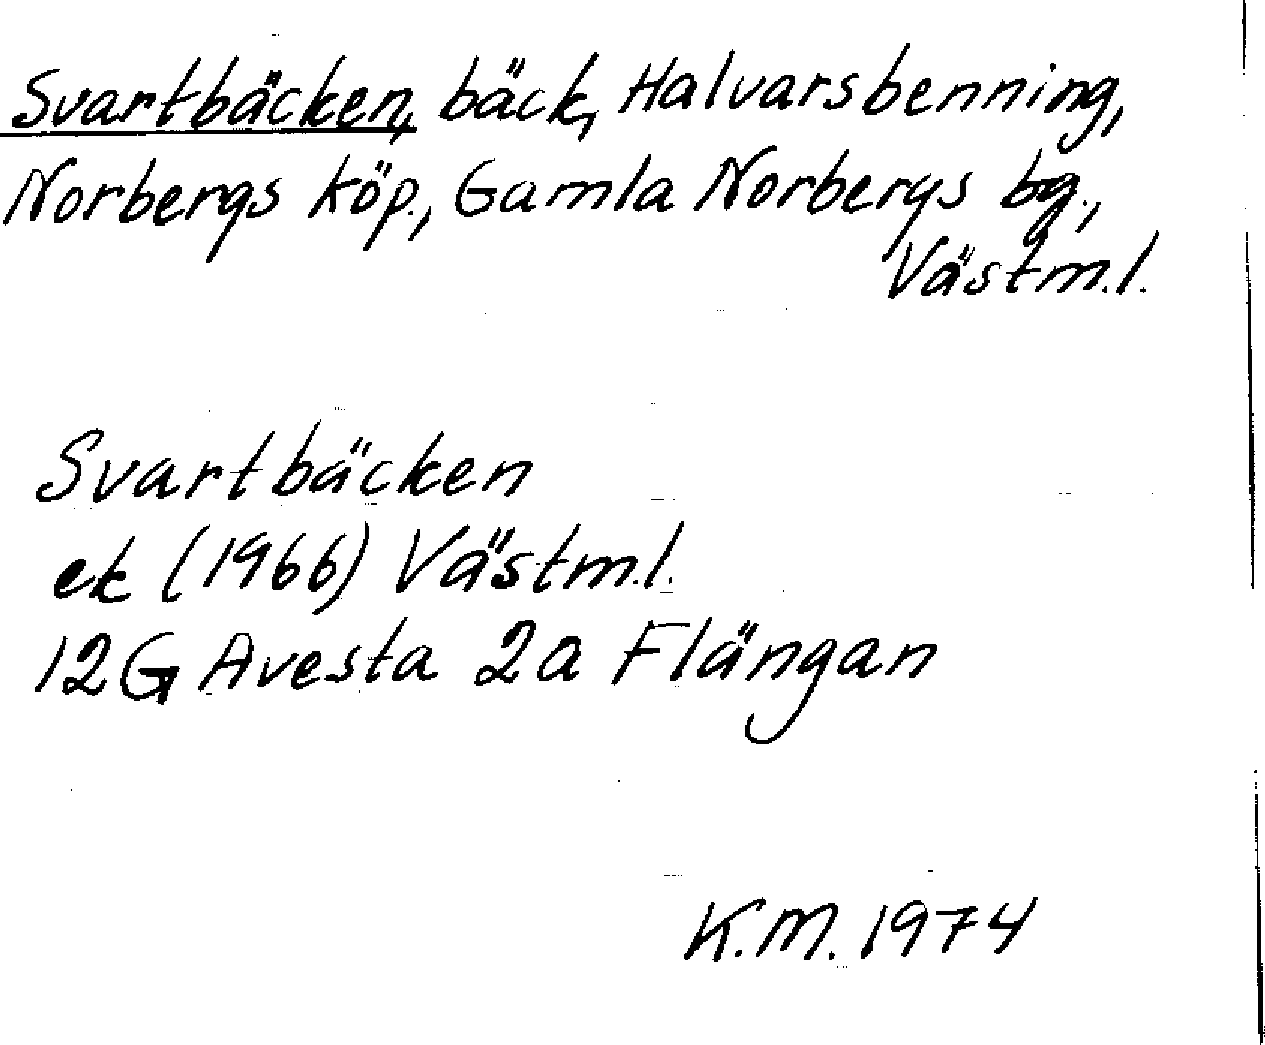 Svartbäcken, bäck, Halvarsbenning,
Norbergs köp., Gamla Norbergs bg.,
Västm.l.
Svartbäcken
ek (1966) Västm.l.
12G Avesta 2a Flängan
K.M. 1974